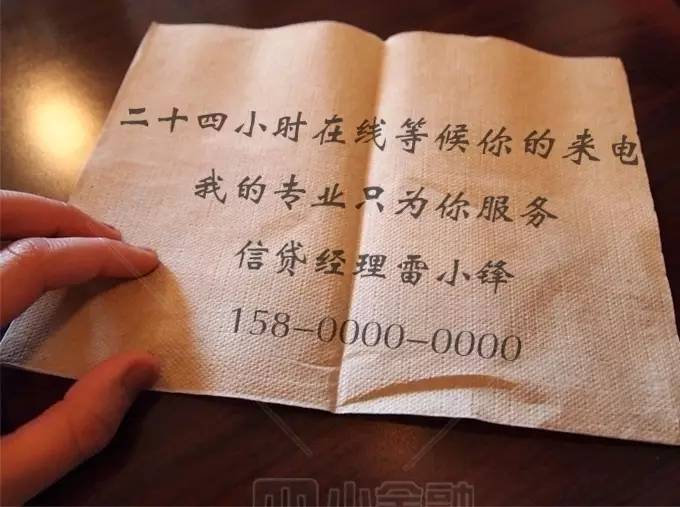 二十四小时在线等候你的来电
我的专业只为你服务
信贷经理雷小锋
158-0000-0000
小金融